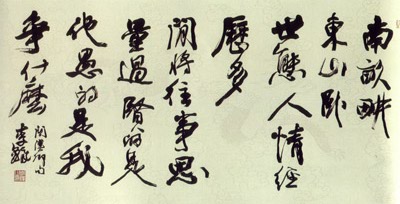 南畝畊
東山卧
世態人情經
歷多
閒将往事思
量過賢的是
他愚的是我
争什麽
關漢卿句
李鐸